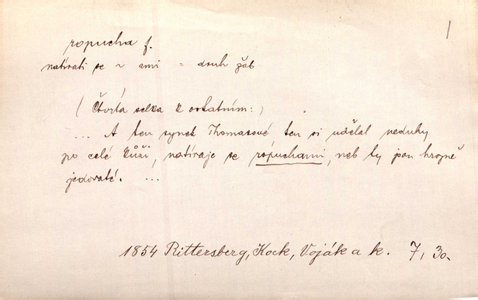 1
ropucha f.
natírati se ~ ami = druh žab
(Čtvrtá selka k ostatním:)
... A ten synek Thomasové ten si udělal neduhy
po celé kůži, natíraje se ropuchami, neb ty jsou hrozně
jedovaté. ...
1854 Rittersberg, Kock, Voják a k. 7, 30.